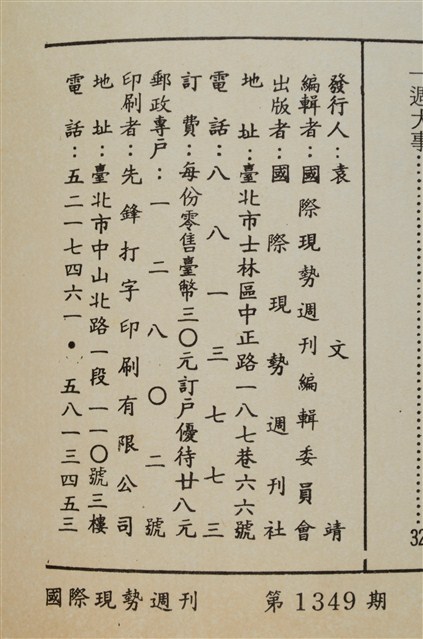 一週大事
32
發行人：袁文靖
編輯者：國際現勢週刊編輯委員會
出版者：國際現勢週刊社
地址：臺北市士林區中正路一八七巷六六號
電話：八八一三七七三
訂費：每份零售臺幣三〇元訂戶優待廿八元
郵政專戶：一二八〇二號
印刷者：先鋒打字印刷有限公司
地址：臺北市中山北路一段一一〇號三樓
電話：五二一七四六一・五八一三四五三
國際現勢週刊 第1349期